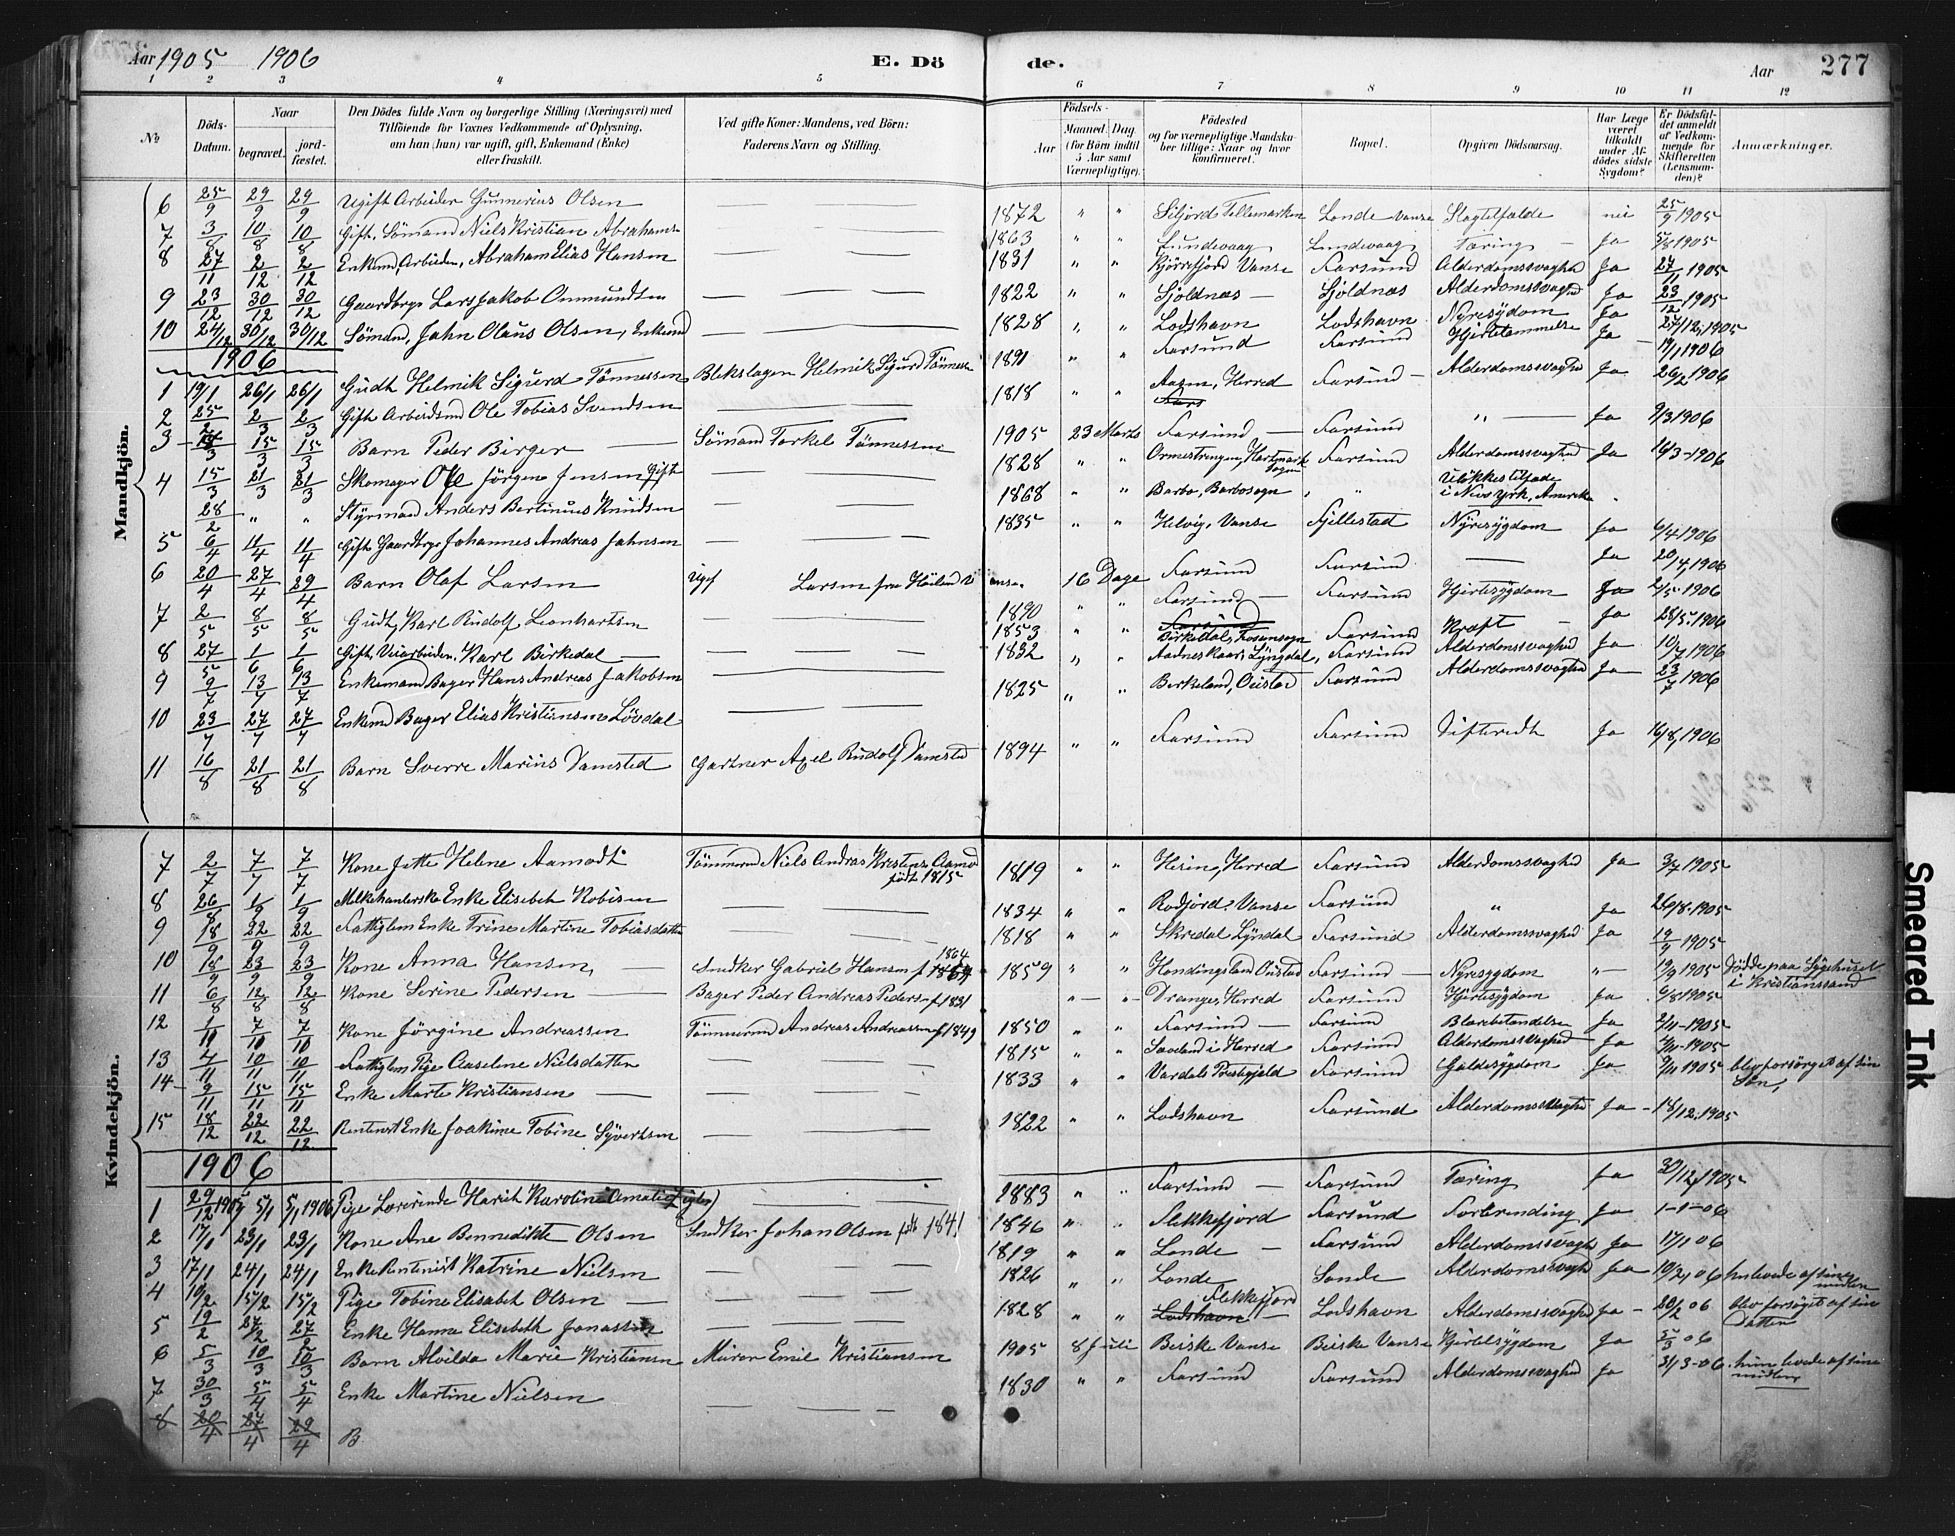 Aar 1905 1906 E. Döde. Aar 277
1 2 3 4 5 6 7 8 9 10 11 12
№ Döds-Datum. Naar begravet. jordfæstet. Den Dödes fulde Navn og borgerlige Stilling (Næringsvei) med Tilföiende for Voxnes Vedkommende af Oplysning, om han (hun) var ugift, gift, Enkemand (Enke) eller fraskilt. Ved gifte Koner: Mandens, ved Börn: Faderens Navn og Stilling. Födsels- Aar Maaned. Dag. (for Börn indtil 5 Aar samt Værnepligtige). Födested og for værnepligtige Mandskaber tillige: Naar og hvor konfirmeret. Bopæl. Opgiven Dödsaarsag. Har Læge været tilkaldt under Afdödes sidste Sygdom? Er Dödsfaldet anmeldt af Vedkommende for Skifteretten (Lensmanden)? Anmærkninger.
Mandkjön.
6 25/9 29/9 29/9 Ugift Arbeider Gunnerius Olsen 1872 " " Siljord Tellemarken Lande Vanse Slagtilfælde nei 25/9 1905
7 3/8 10/8 10/8 Gift, Sömand Niels Kristian Abrahams- 1863 " " Lundevaag Lundevaag Tæring Ja 5/8 1905
8 27/11 2/12 2/12 Enkemd, Arbeider, Abraham Elias Hansen 1831 " " Kjörrefjord Vanse Farsund Alderdomssvaghed Ja 27/11 1905
9 23/12 30/12 30/12 Gaardbrger Lars Jakob Ommundsen 1822 " " Sjöldnæs Sjöldnæs Alderdomssvaghed Ja 23/12 1905
10 24/12 30/12 30/12 Sömand, Jahn Olaus Olsen, Enkemd 1828 " " Lodshavn Lodshavn Nyresÿgdom Ja 27/12 1905
1906
1 19/1 26/1 26/1 Gudt Helmik Sigurd Tönnessen Blekslager Helmik Sigurd Tönnesen 1891 " " Farsund Farsund Hjertelammelse Ja 19/1 1906
2 25/2 2/3 2/3 Gift Arbeidsmd Ole Tobias Svendsen 1818 " " Herred Farsund Alderdomssvaghed Ja 26/2 1906
3 15/3 15/3 Barn Peder Birger Sömand Torkel Tönnessen 1905 23 Marts Farsund Farsund " Ja 9/3 1906
4 15/3 21/3 21/3 Skomager Ole Jörgen Jensen Gift 1828 " " Ormestrengen, Hartmark Sogn Farsund Alderdomssvaghed Ja 16/3-1906
28/2 " " Styrmand Anders Bertinius Knudsen 1868 " " Barbo, Barbosogn " " Ulÿkkestilfæde i New Yrk, Amerika
5 6/4 11/4 11/4 Gift Gaardbrger Johannes Andreas Jahnsen 1835 " " Helvig, Vanse Fjellestad Nÿresÿgdom Ja 6/4 1906
6 20/4 27/4 29/4 Barn Olaf Larsen Ugif Larsen fra Höiland Vanse. 16 Dage Farsund Farsund Ja 20/4 1906
7 2/5 8/5 8/5 Gudt, Karl Rudolf Leonhartsen 1890 " " Farsund Farsund Hjertesÿgdom Ja 2/5 1906
8 27/5 1/6 1/6 Gift, Veiarbeider, Karl Birkedal 1853 " " Birkedal, Farsund Kræft Ja 28/5 1906
9 9/7 13/7 13/7 Enkemand Bager Hans Andreas Jakobsen 1832 " " Aadneskaar, Lyngdal, Farsund Alderdomssvaghed Ja 10/7 1906
10 23/7 27/7 27/7 Enkemd Bager Elias Kristiansen Lövdal 1825 " " Birkeland, Oustad Farsund Alderdomssvaghed Ja 23/7 1906
11 16/8 21/8 21/8 Barn Sverre Marius Vamsted Gartner Axel Rudolf Vamsted 1894 " " Farsund Farsund Difteridt Ja 16/8 1906
Kvindekjön.
7 2/7 7/7 7/7 Kone Jette Helene Aamodt Tömmermd Niels Andreas Kristens. Aamod födt 1815 1819 " " Herred Farsund Alderdomssvaghed Ja 3/7 1905
8 26/8 1/9 1/9 Melkehanlerske Enke Elisebet Robisen 1834 " " Rodjord? Vanse Farsund " Ja 26/8 1905
9 18/9 22/9 22/9 Fattiglem Enke Trine Martine Tobiasdatter 1818 " " Skredal Lÿndal Farsund Alderdomssvaghed Ja 19/9 1905
10 18/9 23/9 23/9 Kone Anna Hansen, Snedker Gabriel Hansen f 1864 1859 " " Oustad Farsund Nyresygdom " 19/9 1905 Dödde paa Sÿgehuset i Kristianssand
11 6/8 12/8 12/8 Kone Serine Pedersen Bager Peder Andreas Peders. f 1831 " " Drange, Herred Farsund Hjertesÿgdom Ja 6/8 1905
12 1/10 7/10 7/10 Kone Jörgine Andreassen Tömmermd Andreas Andreassen f 1849 1850 " " Farsund Farsund Blærebetændelse Ja 2/11-1905
13 4/11 10/11 10/11 Fattiglem Pige Aaselene Nielsdatter 1815 " " Saveland i Herred Farsund Alderdomssvaghed Ja 4/11-1905
14 9/11 15/11 15/11 Enke Marte Kristiansen 1833 " " Vardals Prestegjeld Farsund Galdesÿgdom Ja 9/11 1905 blev forsörget af sin Sön,
15 18/12 22/12 22/12 Rentenist Enke Joakime Tobine Sÿvertsen 1822 " " Lodshavn Farsund Alderdomssvaghed Ja 18/12 1905
1906
1 29/12 1905 5/1 5/1 1906 Pige Lærerinde Harich Karoline Amalie 1883 " " Farsund Farsund Tæring Ja 30/12 1905
2 17/1 23/1 23/1 Kone Ane Bennedikte Olsen Snedker Johan Olsen födt 1841 1846 " " Flekkefjord Farsund Forbrending Ja 1-1-06
3 17/1 24/1 24/1 Enke Rentenist Katrine Nielsen 1819 " " Lande Farsund Alderdomssvagh Ja 17/1 06
4 10/2 15/2 15/2 Pige Tobine Elisabet Olsen 1826 " " Lande Lande Alderdomssvagh Ja 10/2 06 hun levede af sine midler
5 19/2 27/2 27/2 Enke Hanne Elisebeth Jonassen 1828 " " Lodshavn Flekkefjord Lodshavn Alderdomssvaghed Ja 20/2 06 blev forsöget af sin Datter
6 5/3 10/3 10/3 Barn Alvilda Marie Kristiansen Murer Emil Kristiansen 1905 8 Juli Beiske Vanse Beiske Vanse Hjertesÿgdom Ja 5/3 06
7 30/3 5/4 5/4 Enke Martine Nielsen 1830 " " Farsund Farsund Alderdomssvaghed Ja 31/3-06 hun levede af sine midler
8 20/4 27/4 29/4 B
Smeared Ink